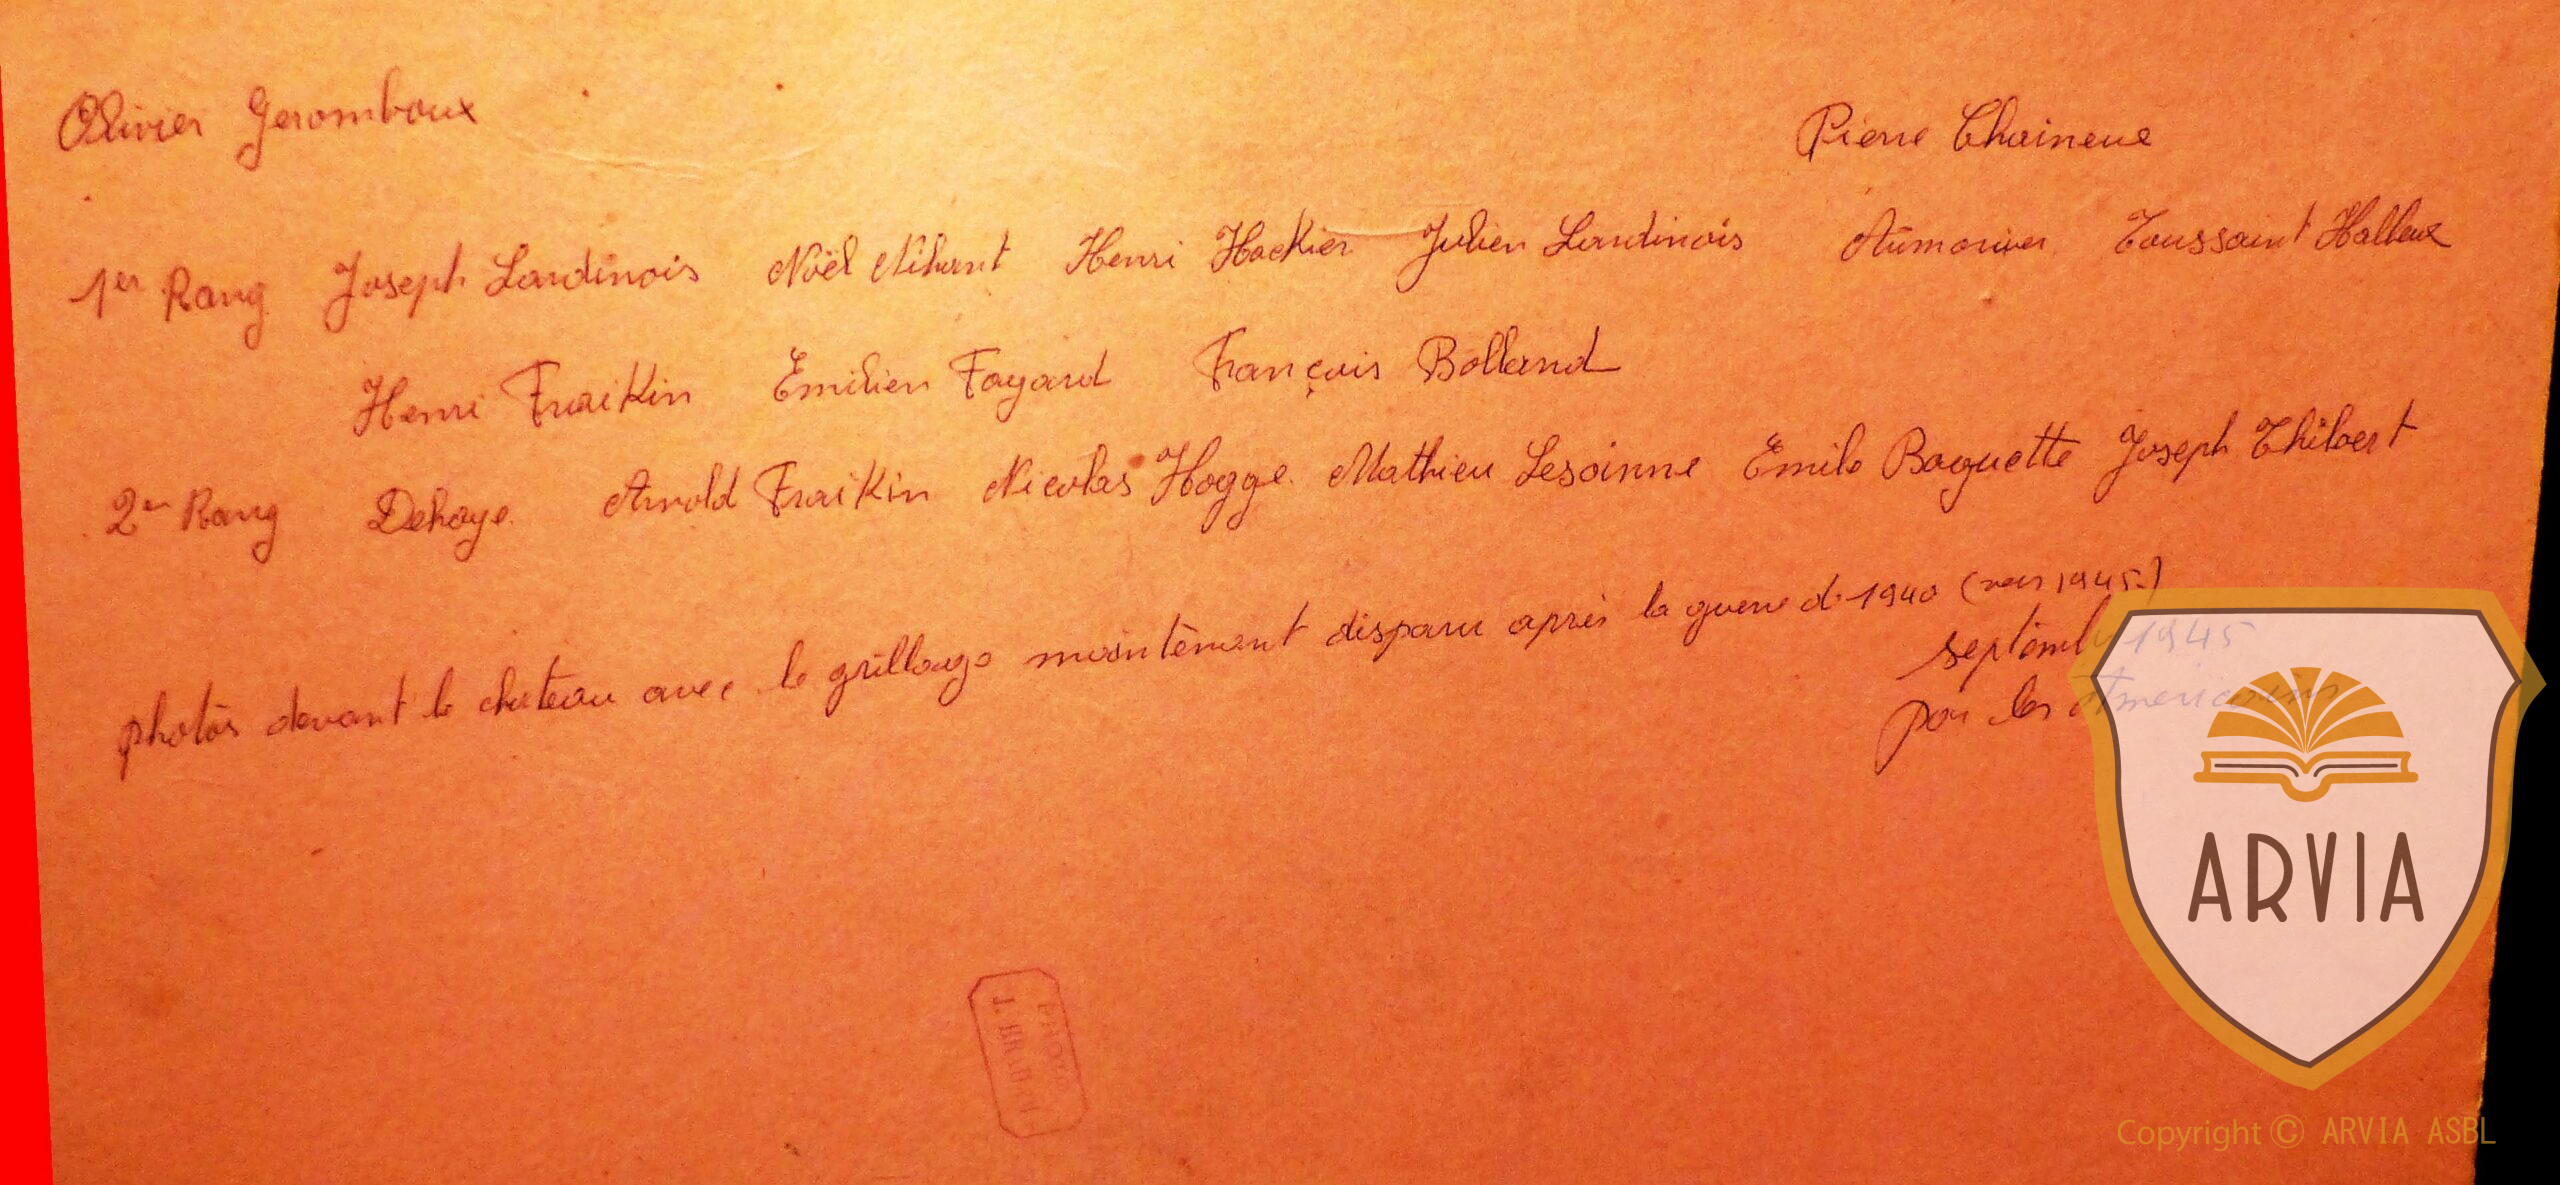 Olivier Geromboux Pierre Chaineue
1er Rang Joseph Lardinois Noël Nihant Henri Hackier Julien Lardinois Aumonier Toussaint Halleux
Henri Fraikin Emilien Fayard François Bolland
2en Rang Dehaye Arnold Fraikin Nicolas Hogge Mathieu Lesoinne Emile Baguette Joseph Thibert
photos devant le chateau avec le grillage maintenant disparu après la guerre de 1940 (vers 1945)
septembre 1945
par les Americains
J.
ARVIA
Copyright © ARVIA ASBL